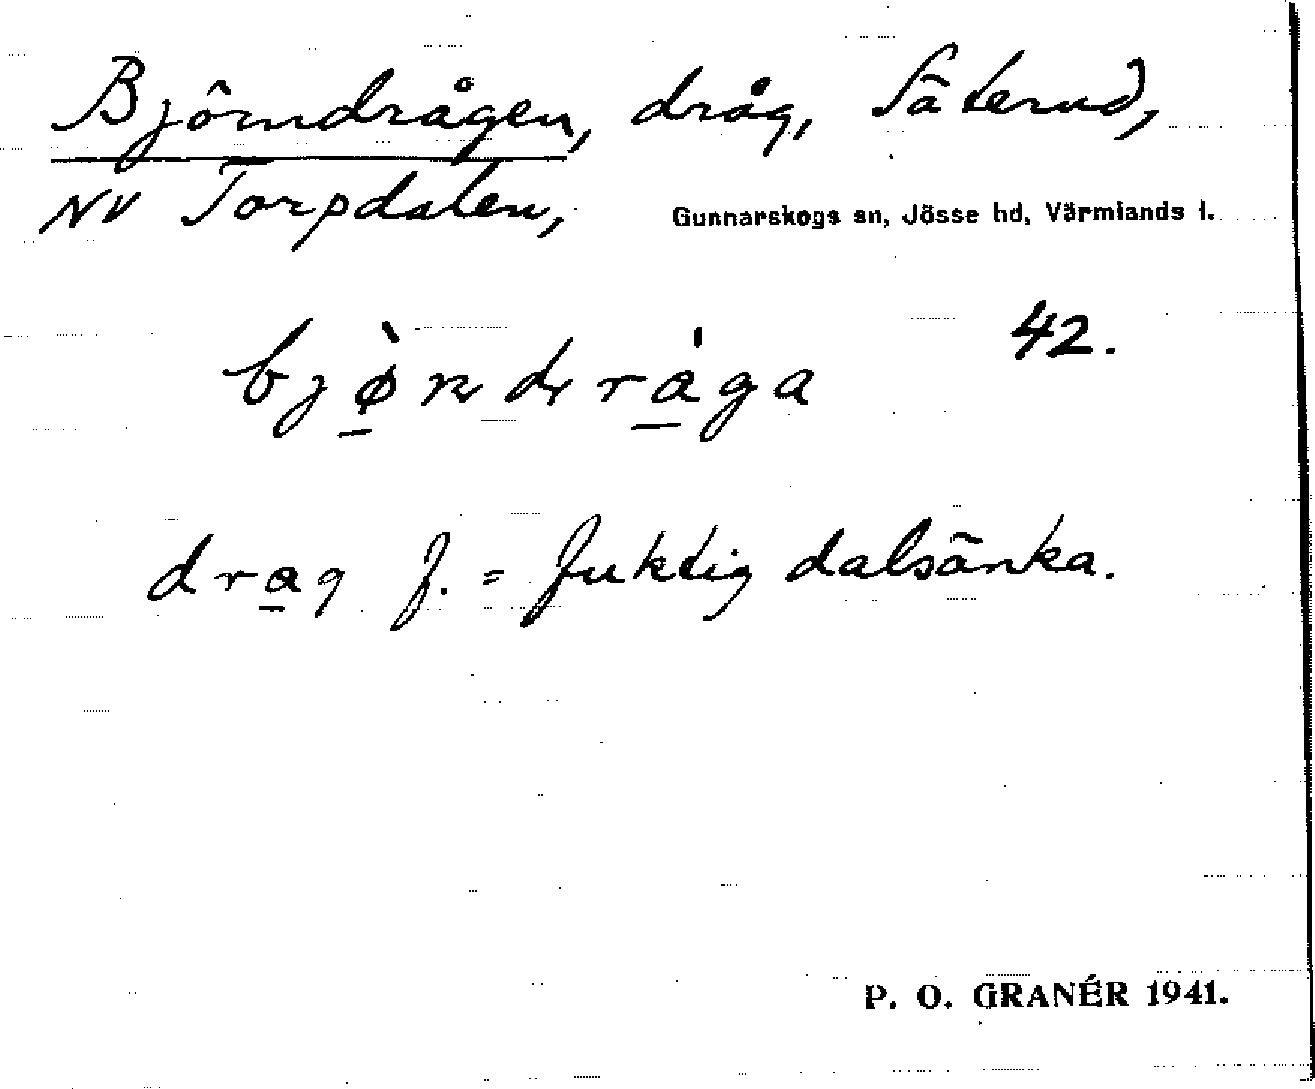 Björndrågen, dråg, Säterud,
NV Torpdalen, Gunnarskogs sn, Jösse hd, Värmlands l.
42.
bjø̀ṇḍrága
drag f. = fuktig dalsänka.
P. O. GRANÉR 1941.